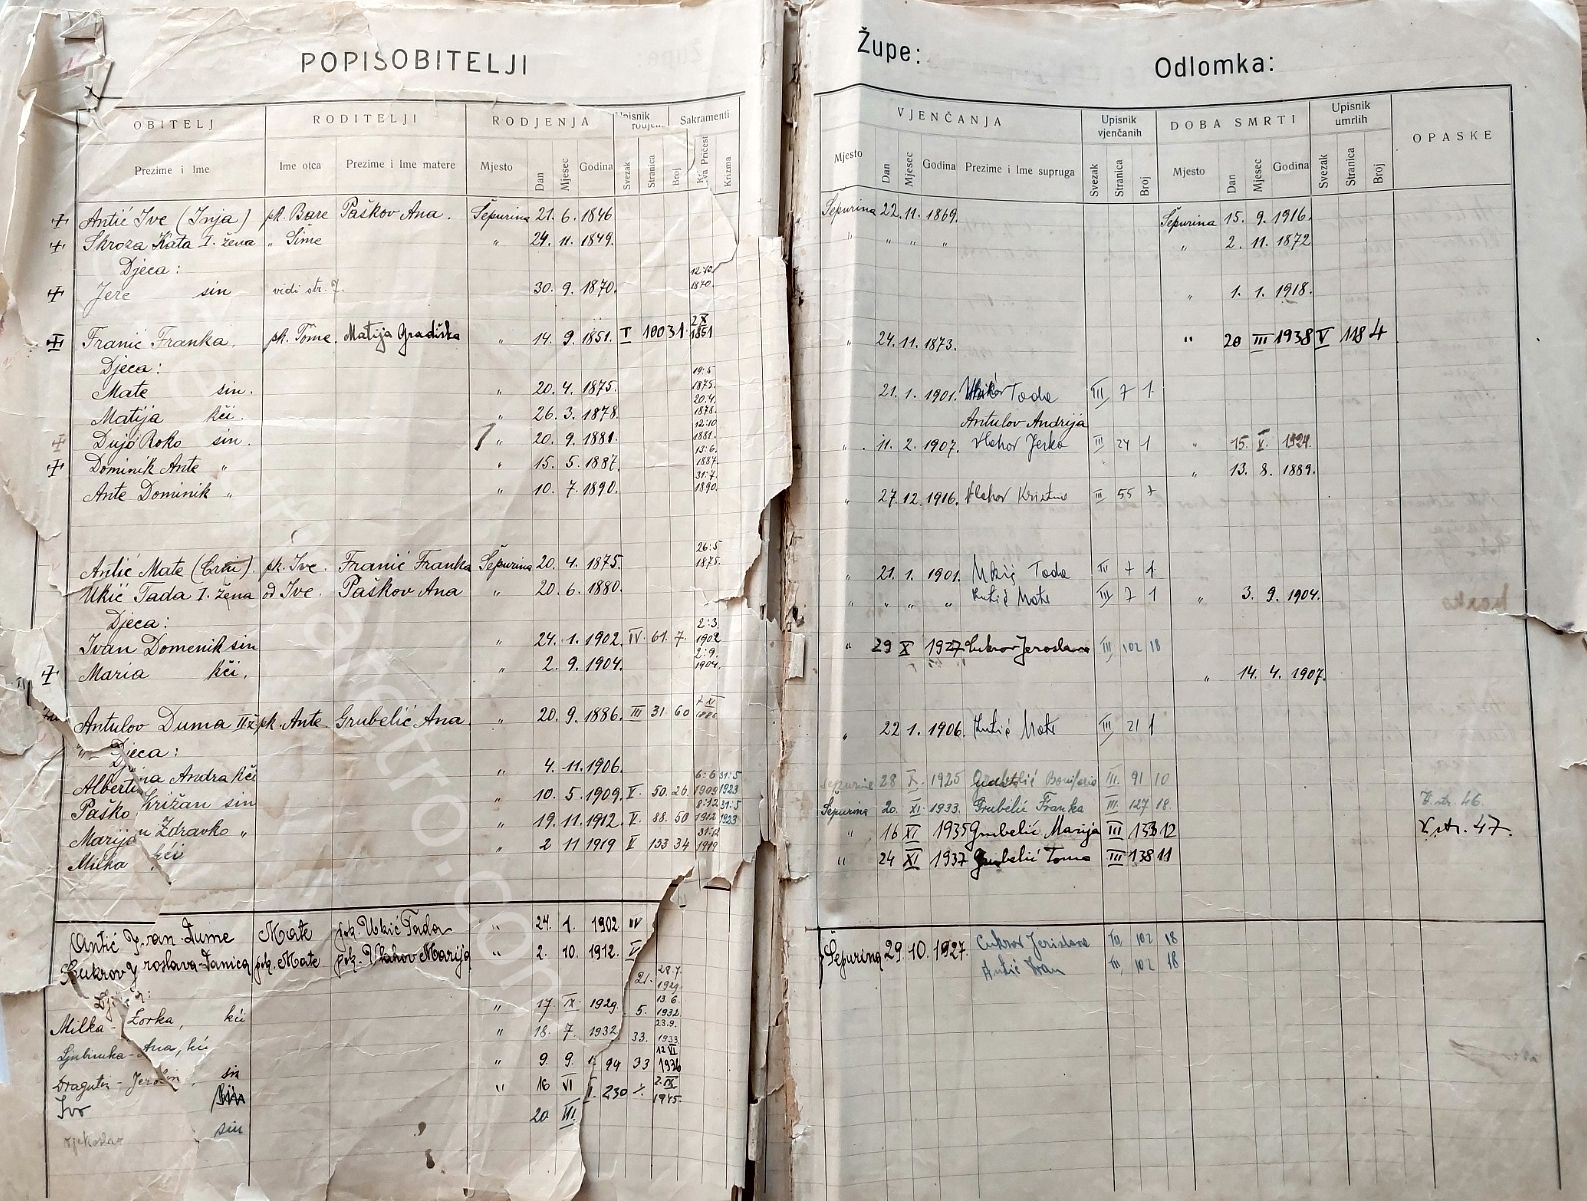 POPISOBITELJI
Župe:
Odlomka:
OBITELJ RODITELJI RODJENJA Upisnik Sakramenti
VJENČANJA Upisnik vjenčanih DOBA SMRTI Upisnik umrlih OPASKE
Prezime i Ime Ime otca Prezime i Ime matere Mjesto Dan Mjesec Godina Svezak Stranica Broj Pričest Krizma
Mjesto Dan Mjesec Godina Prezime i Ime supruga Svezak Stranica Broj Mjesto Dan Mjesec Godina Svezak Stranica Broj
Antić Ive (Inja) pk. Bare Paškov Ana. Šepurina 21. 6. 1846 Šepurina 22. 11. 1869. Šepurina 15. 9. 1916.
Skroza Kata I. žena " Šime " 24. 11. 1849. " " " " " 2. 11. 1872
Djeca:
Jere sin vidi str. 7. 30. 9. 1870. 1870. " 1. 1. 1918.
Franić Franka. pk. Tome Matija Gradiška " 14. 9. 1851. I 100 31 2 X 1851 " 24. 11. 1873. " 20 III 1938 V 118 4
Djeca:
Mate sin. " 20. 4. 1875. 19.5 1875. 21. 1. 1901. Tada III 7 1
Matija kći. " 26. 3. 1878. 20.4. 1878. Antulov Andrija
Dujo Roko sin. " 20. 9. 1881. 12.10 1881. " 11. 2. 1907. Vlahov Jerka III 24 1 " 15. V. 1924.
Dominik Ante " " 15. 5. 1887. 13.6. 1887. " 13. 8. 1889.
Ante Dominik " " 10. 7. 1890. 31.7. 1890. " 27. 12. 1916. Vlahov III 55 7
Antić Mate (Crni). pk. Ive. Franić Franka Šepurina 20. 4. 1875. 26.5 1875. " 21. 1. 1901. Ukić Tada III 7 1
Ukić Tada I. žena od Ive. Paškov Ana " 20. 6. 1880. " " " " Antić Mate III 7 1 " 3. 9. 1904.
Djeca:
Ivan Domenik sin " 24. 1. 1902. IV. 61. 7. 2.3. 1902 " 29 X 1927 Cukrov Jeroslava III 102 18
Maria kći. " 2. 9. 1904. 2.9. 1904. " 14. 4. 1907.
Antulov Duma II ž. pk. Ante Grubelić Ana " 20. 9. 1886. III 31. 60 " 22 1. 1906. Antić Mate III 21 1
Djeca:
Andra kći " 4. 11. 1906. Šepurina 28 X. 1925 Bonifacio III. 91 10
Križan sin " 10. 5. 1909. V. 50. 26 6.6 1909 31.5 1923 Šepurina 20. XI. 1933. Grubelić Franka III. 127 18. V. str. 46.
Paško Zdravko " " 19. 11. 1912. V. 88. 50 8.12 1912 31.5 1923 " 16 XI 1935 Grubelić Marija III 133 12 V. str. 47.
Marija kći " 2 11 1919 V 133 34 31.12 1919 " 24 XI 1937 Grubelić Toma III 138 11
Antić Ivan Dume Mate pok. Ukić Tada " 24. 1. 1902 IV
Cukrov Jeroslava-Danica pok. Mate pok. Vlahov Marija " 2. 10. 1912. V Šepurina 29. 10. 1927. Cukrov Jerislava III 102 18
Antić Ivan III 102 18
Milka-Zorka, kći " 17 IX 1929. 21. 28.7. 1929.
Ljubinka-Ana, kći " 18. 7. 1932 5. 13.6 1932.
Dragutin-Jerolim sin " 9. 9. 33. 23.9. 1933
Ivo " 16 VI 94 33 12 VI 1936
sin 20 III 230 2. IX. 1945.